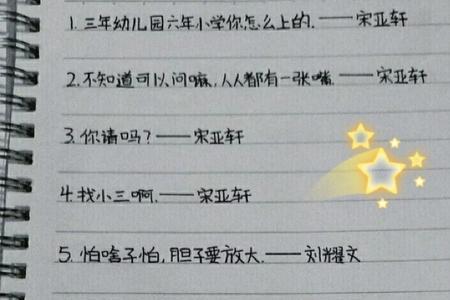 1.三年幼儿园六年小学你怎么上的.——宋亚轩
2.不知道可以问嘛,人人都有一张嘴.——宋亚轩
3.你请吗?——宋亚轩
4.找小三啊.——宋亚轩
5.怕啥子怕,胆子要放大.——刘耀文